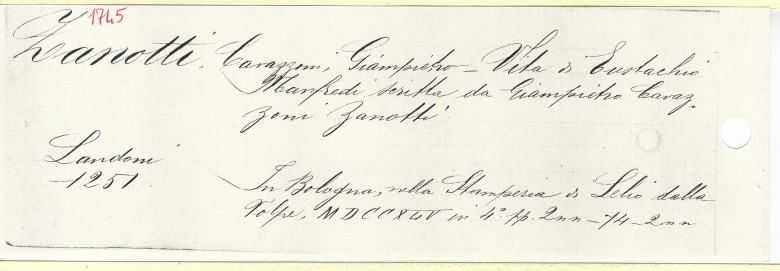 1745
Zanotti, Cavazzoni, Giampietro – Vita di Eustachio
Manfredi scritta da Giampietro Cavaz-
zoni Zanotti.
Landoni
-1251
In Bologna, nella Stamperia di Lelio dalla
Volpe, MDCCXLV in 4° pp. 2nn-74-2nn